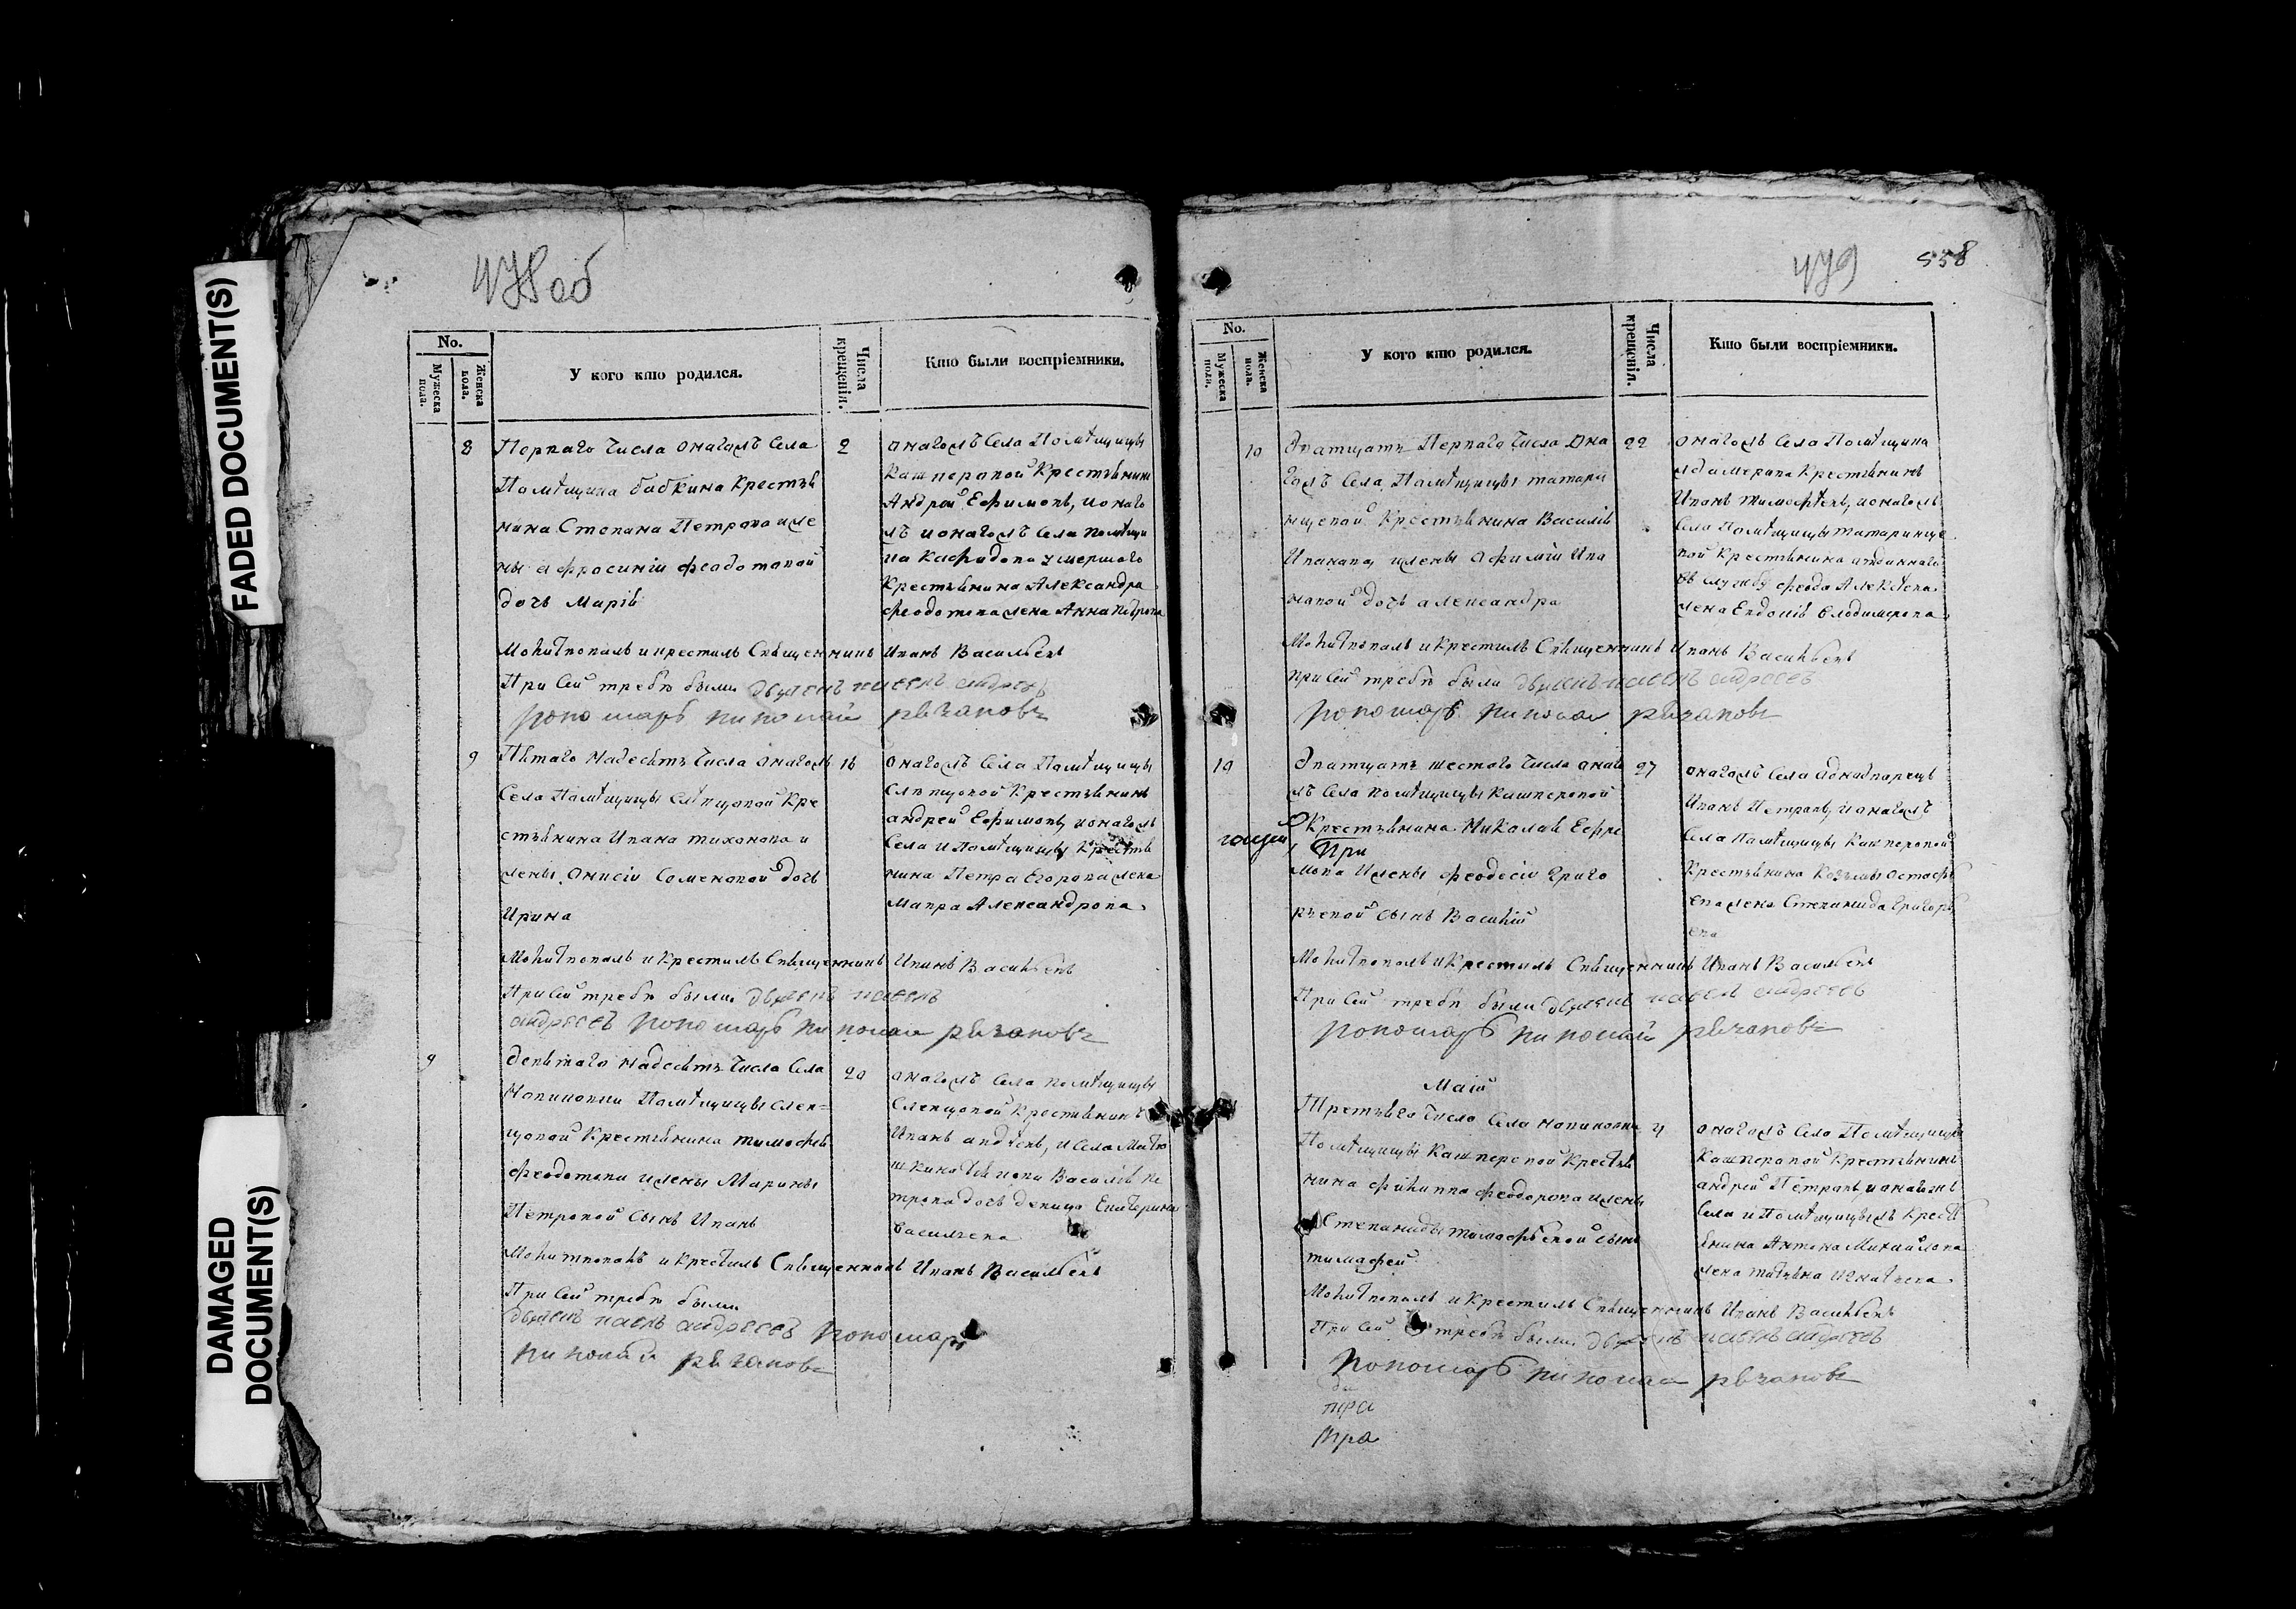 FADED DOCUMENT(S)
DAMAGED DOCUMENT(S)
478 об
No.
Мужеска пола.
Женска пола.
У кого кто родился.
Числа крещенія.
Кто были воспріемники.
8
Перваго числа онагожъ села
Помѣщика бабкина Крестья
нина Степана Петрова и же
ны афросиніи феодотовой
дочь Марія
2
онагожъ села Помѣщицы
Кашперовой Крестьянинъ
Андрей Ефимовъ, и онаго
жъ и онагожъ села помѣщи
ка умершаго
Крестьянина Александра
феодотова жена Анна Петрова
Молитвовалъ и крестилъ Священникъ Иванъ Васильевъ
При сей требѣ были дьячекъ иаковъ андреев
пономарь николай рѣзановъ
9
Пятаго надесять числа онагожъ
села Помѣщицы слѣпцовой Кре
стьянина Ивана тихонова и
жены Анисіи Семеновой дочь
Ирина
16
онагожъ села Помѣщицы
Слѣпцовой Крестьянинъ
андрей Ефимовъ, и онагожъ
села и Помѣщицы Крестья
нина Петра Егорова жена
Мавра Александрова
Молитвовалъ и крестилъ Священникъ Иванъ Васильевъ
При сей требѣ были дьячекъ иаковъ
андреевъ пономарь николаи рѣзановъ
9
девятаго надесять числа села
Помѣщицы слеп=
цовой Крестьянина тимофея
феодотова и жены Марины
Петровой сынъ Иванъ
20
онагожъ села помѣщицы
Слепцовой Крестьянинъ
Иванъ, и села Митю
шкина Василія Пе
трова дочь девица Екатерина
Васильева
Молитвовалъ и крестилъ Священникъ Иванъ Васильевъ
При сей требѣ были
дьячекъ иаковъ андреевъ пономарь
николай рѣзановъ
479
558
No.
Мужеска пола.
Женска пола.
У кого кто родился.
Числа крещенія.
Кто были воспріемники.
10
дватцать Перваго числа она
гожъ села Помѣщицы татари
нцевой Крестьянина Василія
Иванова, и жены Афиміи Ива
новой дочь александра
22
онагожъ села Помѣщика
Крестьянинъ
Иванъ тимофѣевъ, и онагожъ
села Помѣщицы татаринце
вой Крестьянина отданнаго
въ службу феода Алексѣева
жена Евдокія Владимерова
Молитвовалъ и крестилъ Священникъ Иванъ Васильевъ
при сей требѣ были дьячекъ иаковъ андреев
пономарь николаи рѣзановъ
10
дватцать шестаго числа онаго
жъ села помѣщицы кашперовой
Крестьянина Николая Ефи
При
мова и жены феодосіи Григо
рьевой сынъ Василій
27
онагожъ села однодворецъ
Иванъ Петровъ, и онагожъ
села помѣщицы Кашперовой
Крестьянина Козьмы Остафь
ева жена Степанида Григорь
ева
Молитвовалъ и крестилъ Священникъ Иванъ Васильевъ
При сей требѣ были дьячекъ иаковъ андреевъ
пономарь николай рѣзановъ
Маія
Третьяго числа села
Помѣщицы Кашперовой Крестья
нина филиппа феодорова и жены
Степаниды тимофѣевой сынъ
тимофей
4
онагожъ села Помѣщицы
Кашперовой Крестьянинъ
андрей Петровъ, и онагожъ
села и Помѣщицы жъ Кресть
янина Антона Михайлова
жена татьяна Игнатьева
Молитвовалъ и крестилъ Священникъ Иванъ Васильевъ
При сей требѣ были дьячекъ иаковъ андреевъ
пономарь николаи рѣзановъ